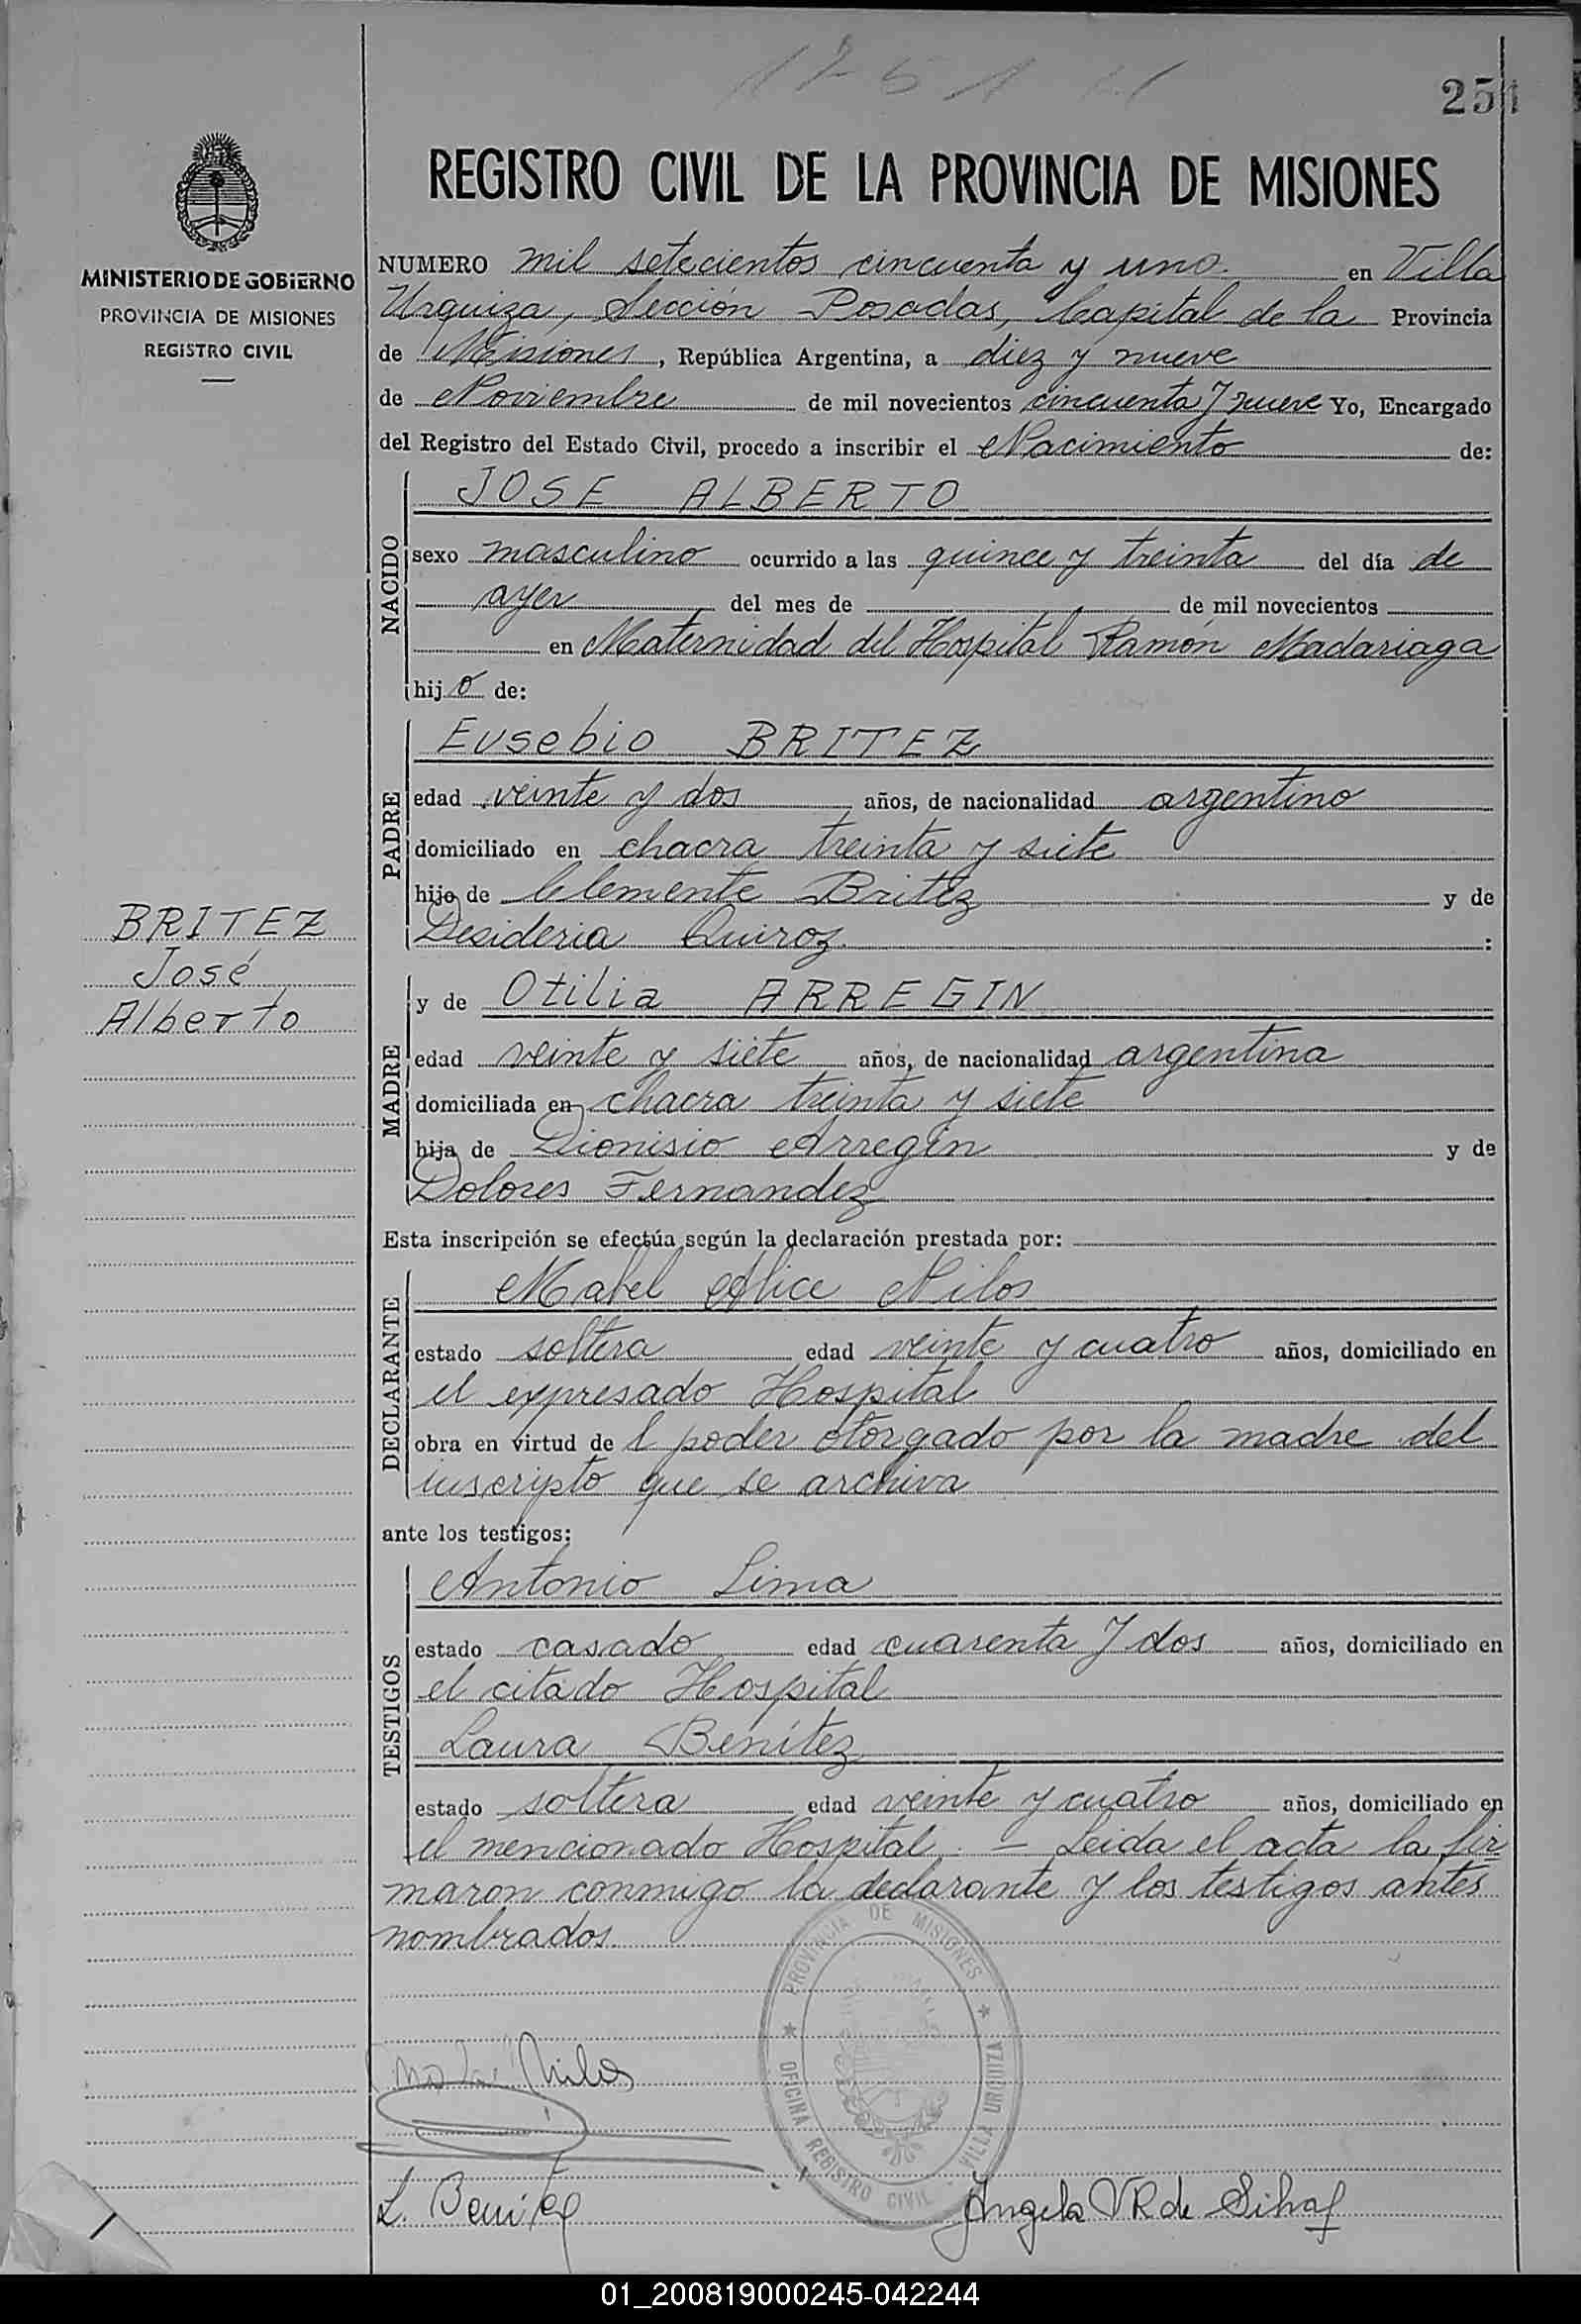 1751
251
MINISTERIO DE GOBIERNO
PROVINCIA DE MISIONES
REGISTRO CIVIL
BRITEZ
José
Alberto
REGISTRO CIVIL DE LA PROVINCIA DE MISIONES
NUMERO mil setecientos cincuenta y uno. en Villa
Urquiza, Sección Posadas, Capital de la Provincia
de Misiones, República Argentina, a diez y nueve
de Noviembre de mil novecientos cincuenta y nueve Yo, Encargado
del Registro del Estado Civil, procedo a inscribir el Nacimiento de:
NACIDO
JOSE ALBERTO
sexo masculino ocurrido a las quince y treinta del día de
ayer del mes de de mil novecientos
en Maternidad del Hospital Ramón Madariaga
hijo de:
PADRE
Eusebio BRITEZ
edad veinte y dos años, de nacionalidad argentino
domiciliado en chacra treinta y siete
hijo de Clemente Britez y de
Desideria Quiroz :
MADRE
y de Otilia ARREGIN
edad veinte y siete años, de nacionalidad argentina
domiciliada en chacra treinta y siete
hija de Dionisio Arregin y de
Dolores Fernandez
Esta inscripción se efectúa según la declaración prestada por:
DECLARANTE
Mabel Alice Nilos
estado soltera edad veinte y cuatro años, domiciliado en
el expresado Hospital
obra en virtud de l poder otorgado por la madre del
inscripto que se archiva
ante los testigos:
TESTIGOS
Antonio Lima
estado casado edad cuarenta y dos años, domiciliado en
el citado Hospital
Laura Benítez
estado soltera edad veinte y cuatro años, domiciliado en
el mencionado Hospital. - Leida el acta la fir
maron conmigo la declarante y los testigos antes
nombrados.
PROVINCIA DE MISIONES
OFICINA REGISTRO CIVIL - VILLA URQUIZA
Nilos
L. Benitez
Angela VR de Silva
01_200819000245-042244